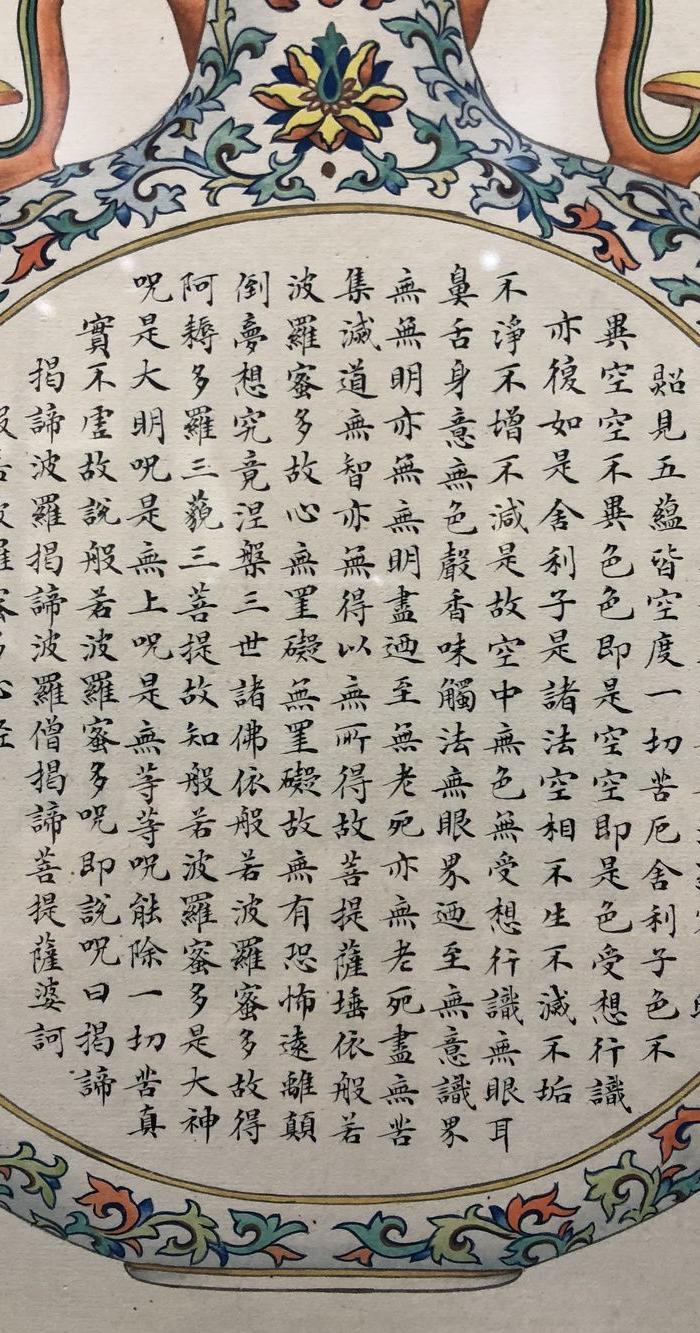 照見五蘊皆空度一切苦厄舍利子色不
異空空不異色色即是空空即是色受想行識
亦復如是舍利子是諸法空相不生不滅不垢
不淨不增不減是故空中無色無受想行識無眼耳
鼻舌身意無色聲香味觸法無眼界迺至無意識界
無無明亦無無明盡迺至無老死亦無老死盡無苦
集滅道無智亦無得以無所得故菩提薩埵依般若
波羅蜜多故心無罣礙無罣礙故無有恐怖遠離顛
倒夢想究竟涅槃三世諸佛依般若波羅蜜多故得
阿耨多羅三藐三菩提故知般若波羅蜜多是大神
呪是大明呪是無上呪是無等等呪能除一切苦真
實不虛故說般若波羅蜜多呪即說呪曰揭諦
揭諦波羅揭諦波羅僧揭諦菩提薩婆訶
般若波羅蜜多心經